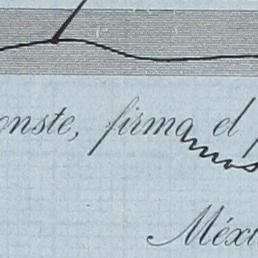 onste, firma el
mos
Méxi